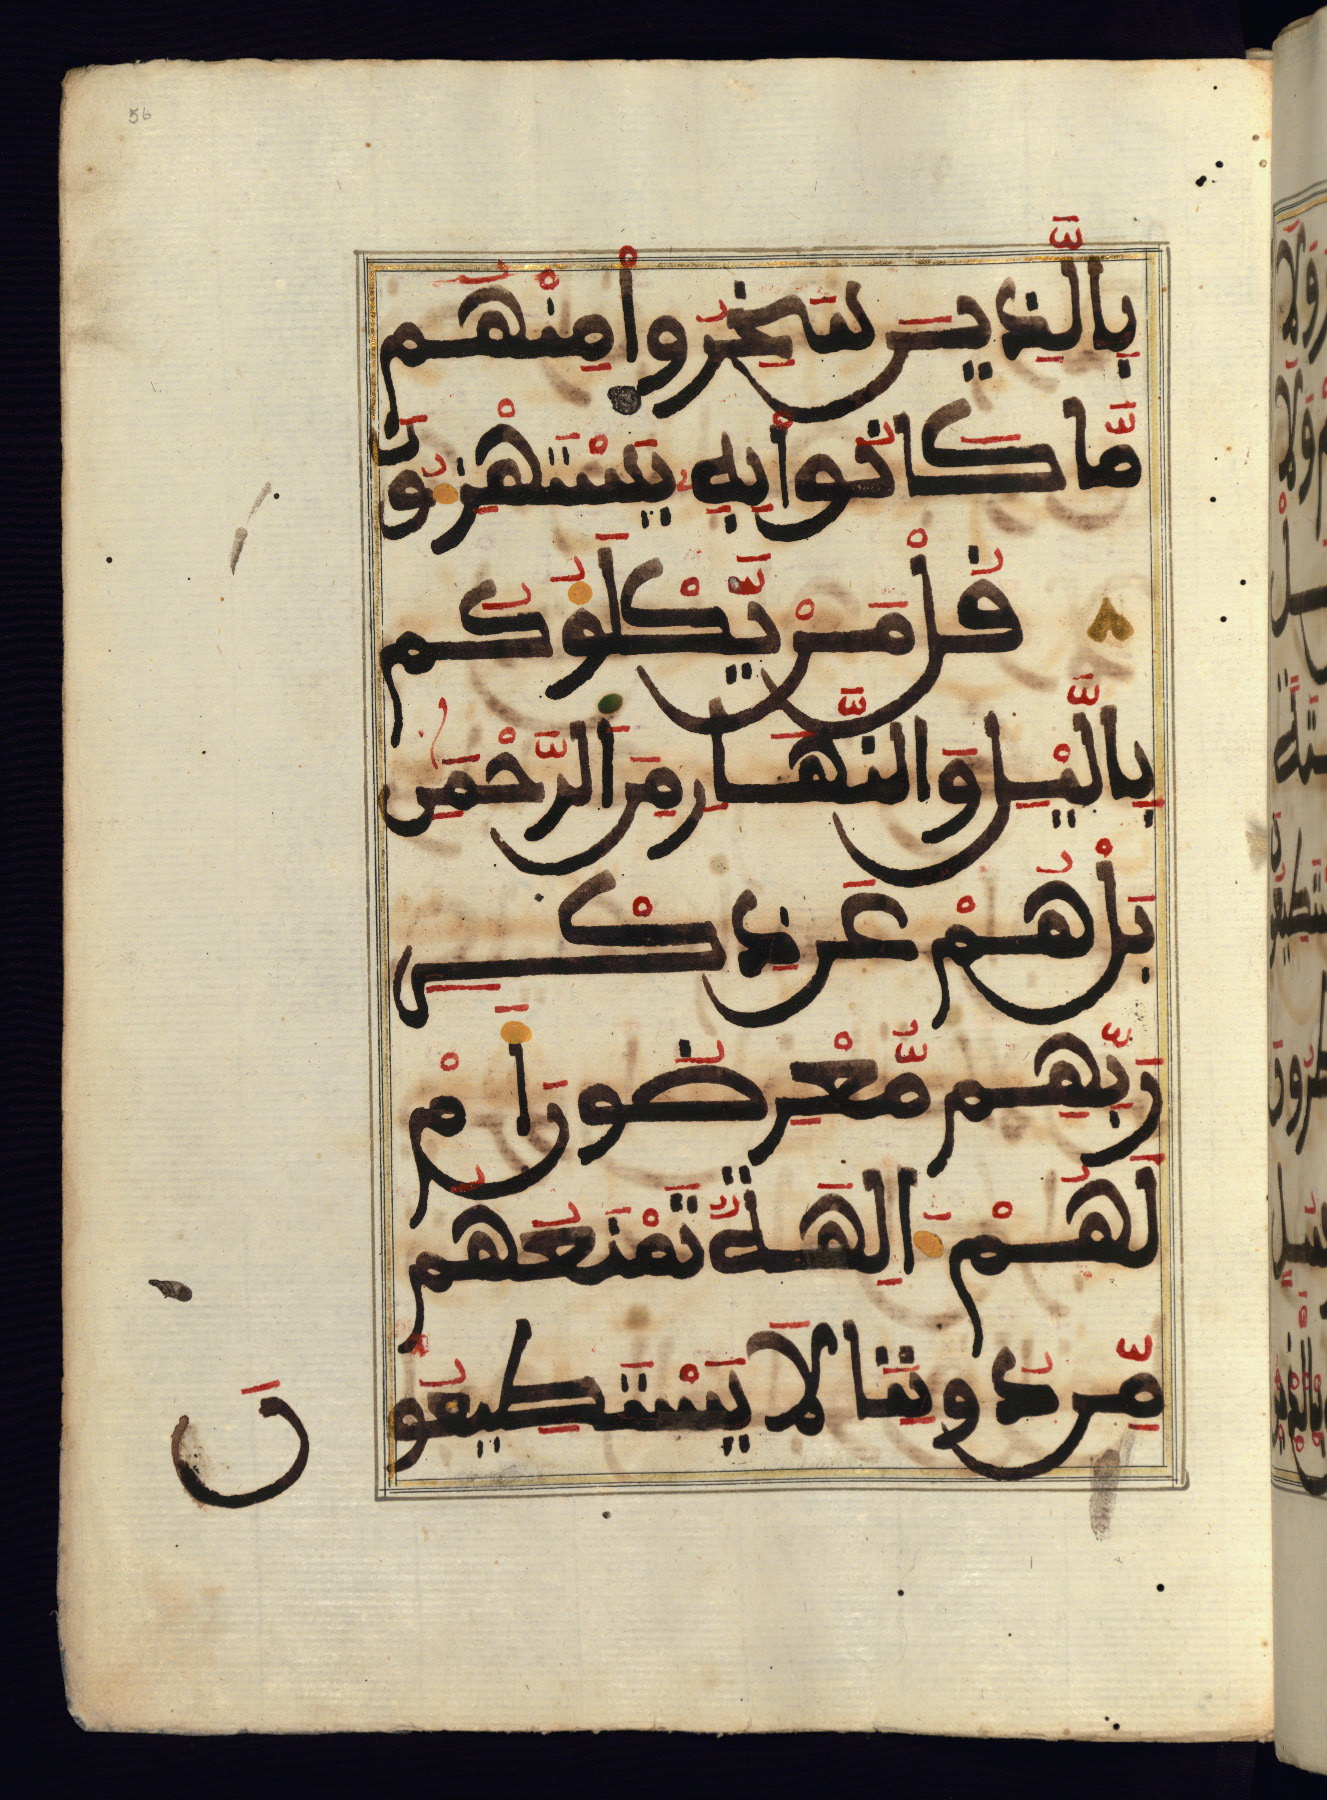 56
بِالَّذِينَ سَخِرُواْ مِنْهُم
مَّا كَانُواْ بِهِ يَسْتَهْزِءُونَ
قُلْ مَنْ يَّكْلَؤُكُم
بِالَّيْلِ وَالنَّهَارِ مِنَ الرَّحْمَنِ
بَلْ هُمْ عَن ذِكْرِ
رَبِّهِم مُّعْرِضُونَ أَمْ
لَهُمْ ءَالِهَةٌ تَمْنَعُهُم
مِّن دُونِنَا لَا يَسْتَطِيعُو
نَ